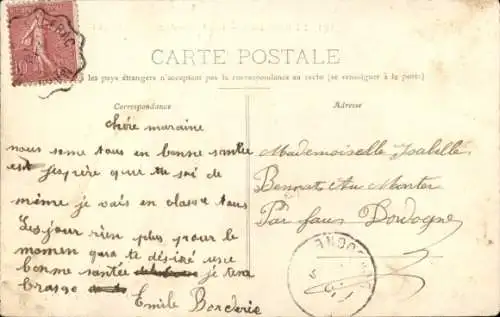 CARTE POSTALE
les pays étrangers n'acceptant pas la correspondance au recto (se renseigner à la poste)
Correspondance
Adresse
chére maraine
nous some tous en bonne santée
est j'espère que tu soi de
même je vais en classe tous
les jour rien plus pour le
momen que te désiré une
bonne santée je tem
brasse
Emile Borderie
Mademoiselle Isabelle
Au
Par faux Dordogne
10